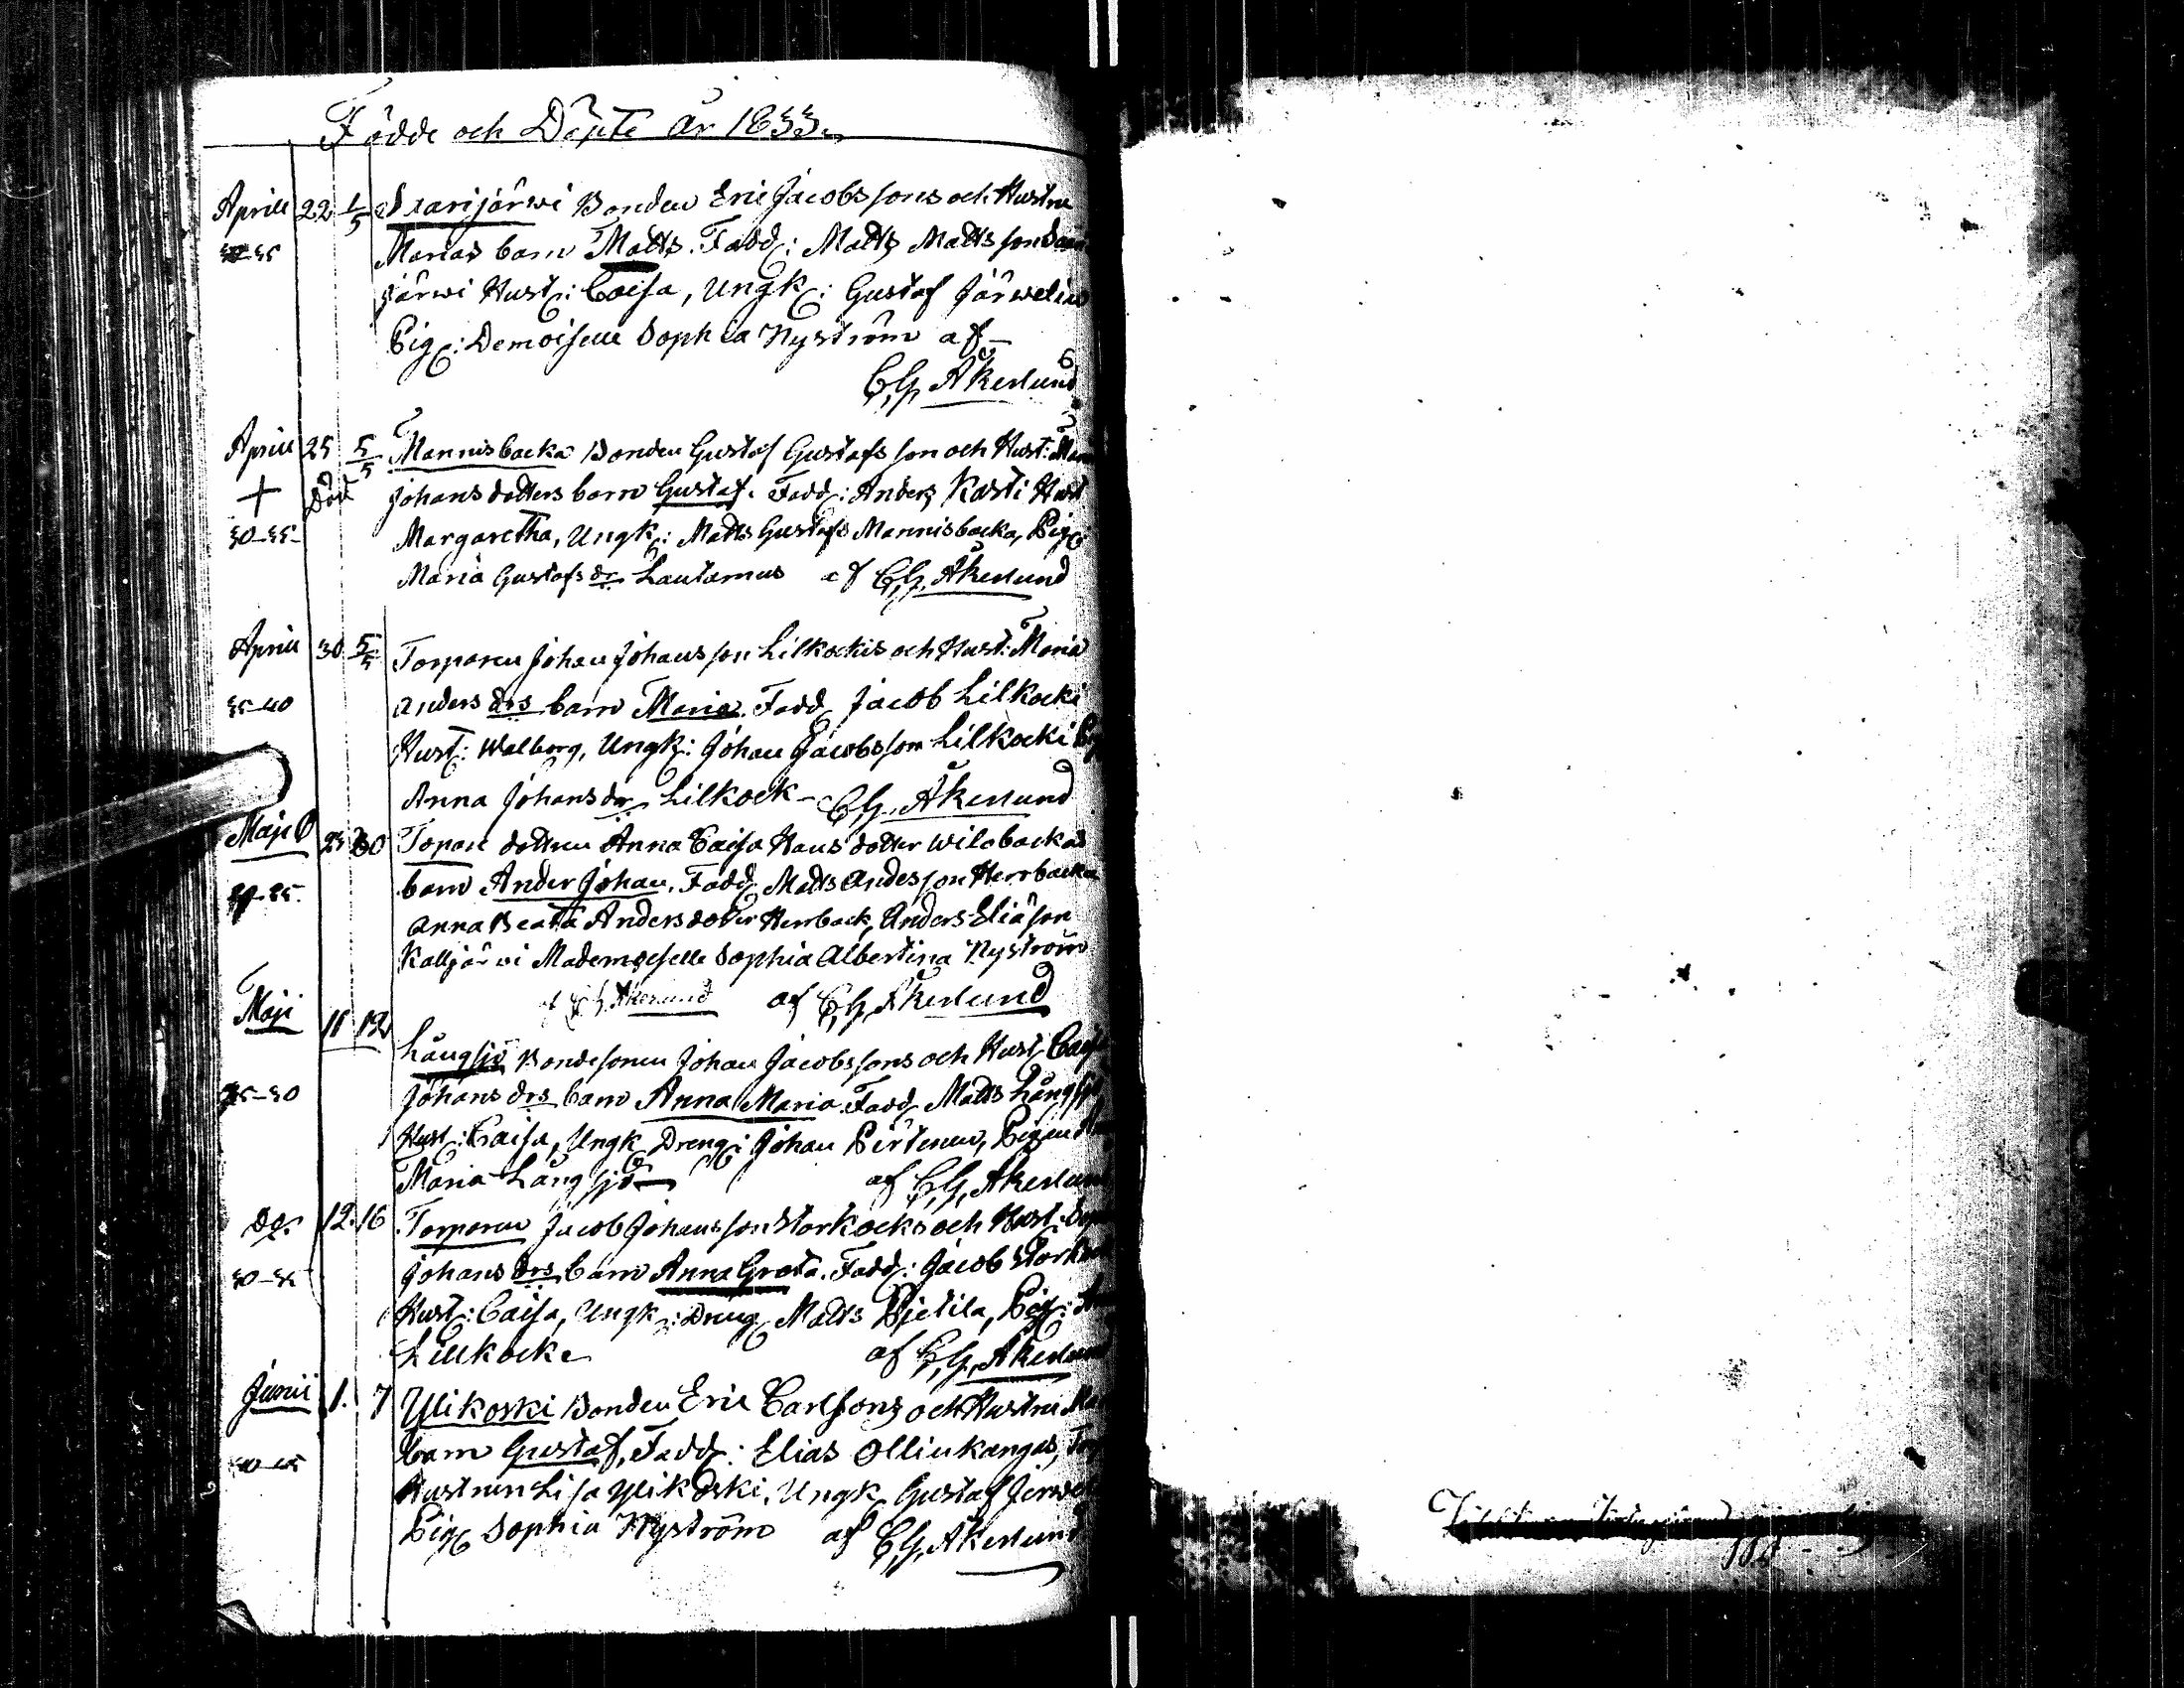 Födde och Döpte år 1833.
Aprill 22 1/5 Saarijärwi Bonden Eric Jacobssons och Hustru
Marias barn Matts. Fadd: Matts Mattsson Saari
35 järwi Hust: Caisa, Ungk: Gustaf Järwelin
Pig: Demoiselle Sophia Nyström af
C.G. Åkerlund
Aprill 25 5/5 Mannisbacka Bonden Gustaf Gustafsson och Hust:
+ Död Johansdotters barn Gustaf. Fadd: Anders Kasti Hust
30-35 Margaretha, Ungk: Matts Gustafs Mannisbacka, Pig:
Maria Gustafs dr Lautamus af C.G. Åkerlund
Aprill 30 5/5 Torparen Johan Johansson Lilkockis och Hust: Maria
35-40 Anders drs barn Maria. Fadd Jacob Lilkocki
Hust: Walborg, Ungk: Johan Jacobsson Lilkocki
Anna Johans dr Lilkock - C.G. Åkerlund
Maji 25 30 Torpare dottren Anna Caisa Hans dotter Wilobackas
barn Ander Johan. Fadd Matts Andesson Herrbacka
25 Anna Beata Andersdotter Herrback, Anders Eliason
Kalljärwi Mademoiselle Sophia Albertina Nyström
af C.G. Åkerlund af C.G. Åkerlund
Maji 11 12 Långsjö Bondesonen Johan Jacobssons och Hust Caisa
25-30 Johans drs barn Anna Maria. Fadd Matts Långsjö
Hust: Caisa, Ungk Dreng: Johan Pertenen, Pigan
Maria Långsjö af C.G. Åkerlund
do 12. 16 Torparen Jacob Johansson Storkocks och Hust:
30-35 Johans drs barn Anna Greta. Fadd: Jacob Storkock
Hust: Caisa, Ungk: Dreng Matts Pjetila, Pig:
Lillkocke af C.G. Åkerlund
Junii 1. 7 Ylikoski Bonden Eric Carlsons och Hustru
barn Gustaf, Fadd: Elias Ollinkangas,
40-45 Hustrun Lisa Ylikoski, Ungk Gustaf Jerwelin
Pig Sophia Nyström af C.G. Åkerlund